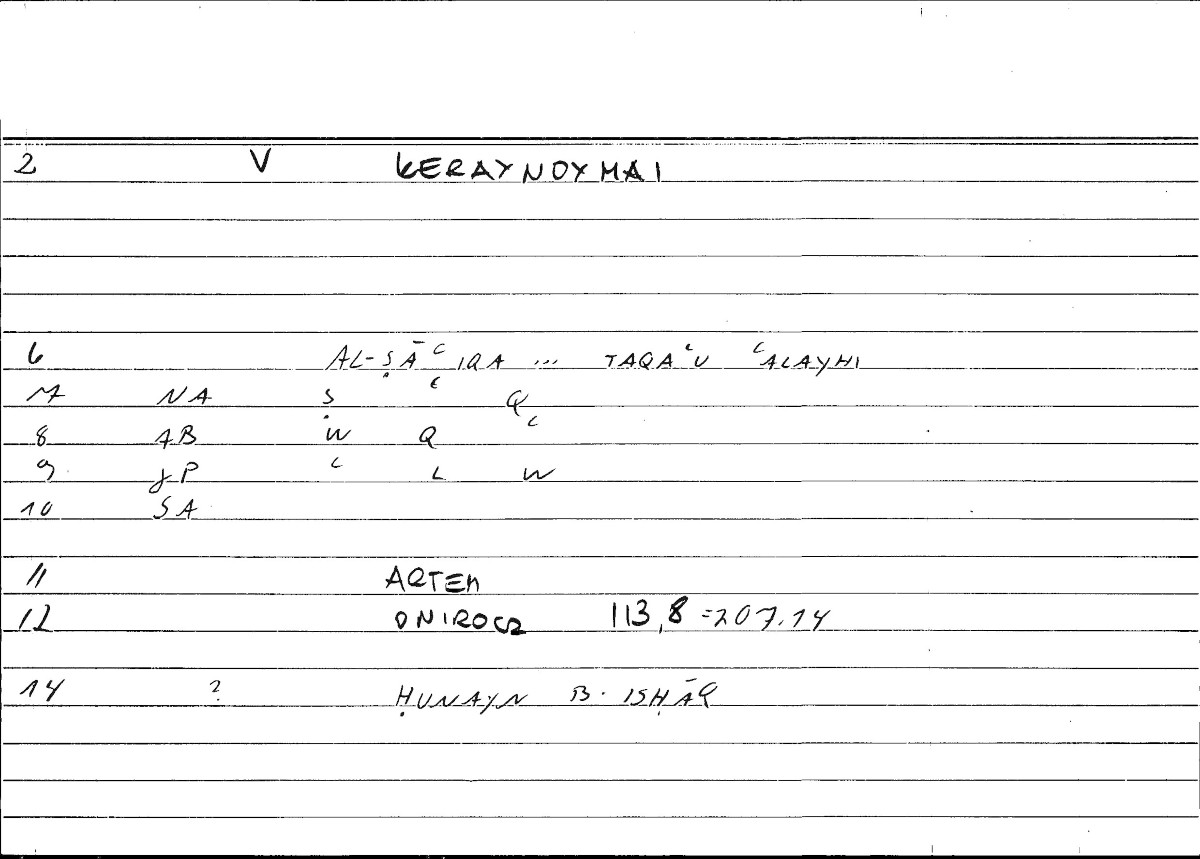 2 V KERAYNOYMAI
6 AL-ṢĀʿIQA ... TAQAʿU ʿALAYHI
7 NA Ṣ ʿ Q
8 AB W Q ʿ
9 JP ʿ L W
10 SA
11 ARTEM
12 ONIROCR 113,8 =207.14
14 ? ḤUNAYN B. ISḤĀQ